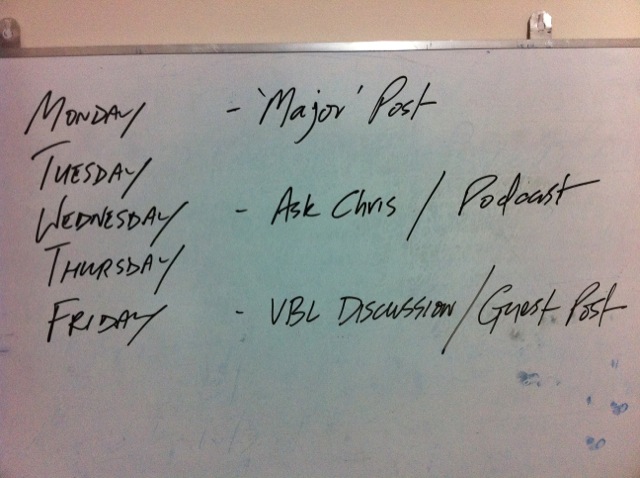 Monday - 'Major' Post
Tuesday
Wednesday - Ask Chris / Podcast
Thursday
Friday - VBL Discussion / Guest Post